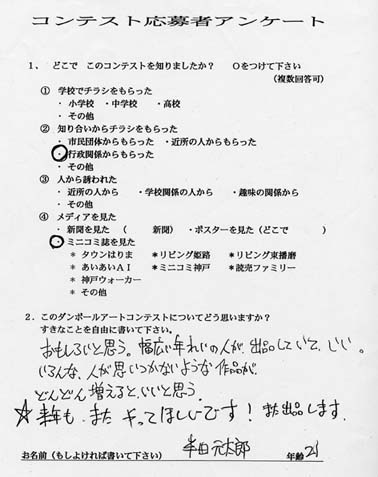 コンテスト応募者アンケート
1、 どこで このコンテストを知りましたか？ ○をつけて下さい
（複数回答可）
① 学校でチラシをもらった
・小学校 ・中学校 ・高校
・その他
② 知り合いからチラシをもらった
・市民団体からもらった ・近所の人からもらった
・行政関係からもらった
・その他
③ 人から誘われた
・近所の人から ・学校関係の人から ・趣味の関係から
・その他
④ メディアを見た
・新聞を見た （ 新聞） ・ポスターを見た（どこで ）
・ミニコミ誌を見た
＊タウンはりま ＊リビング姫路 ＊リビング東播磨
＊あいあいAI ＊ミニコミ神戸 ＊読売ファミリー
＊神戸ウォーカー
＊その他
2．このダンボールアートコンテストについてどう思いますか？
すきなことを自由に書いて下さい。
おもしろいと思う。幅広い年れいの人が、出品していて、いい。
いろんな、人が思いつかないような作品が、
どんどん増えるといいと思う。
☆来年も、また やってほしいです！また出品します。
お名前（もしよければ書いて下さい） 半田 元太郎 年齢 21